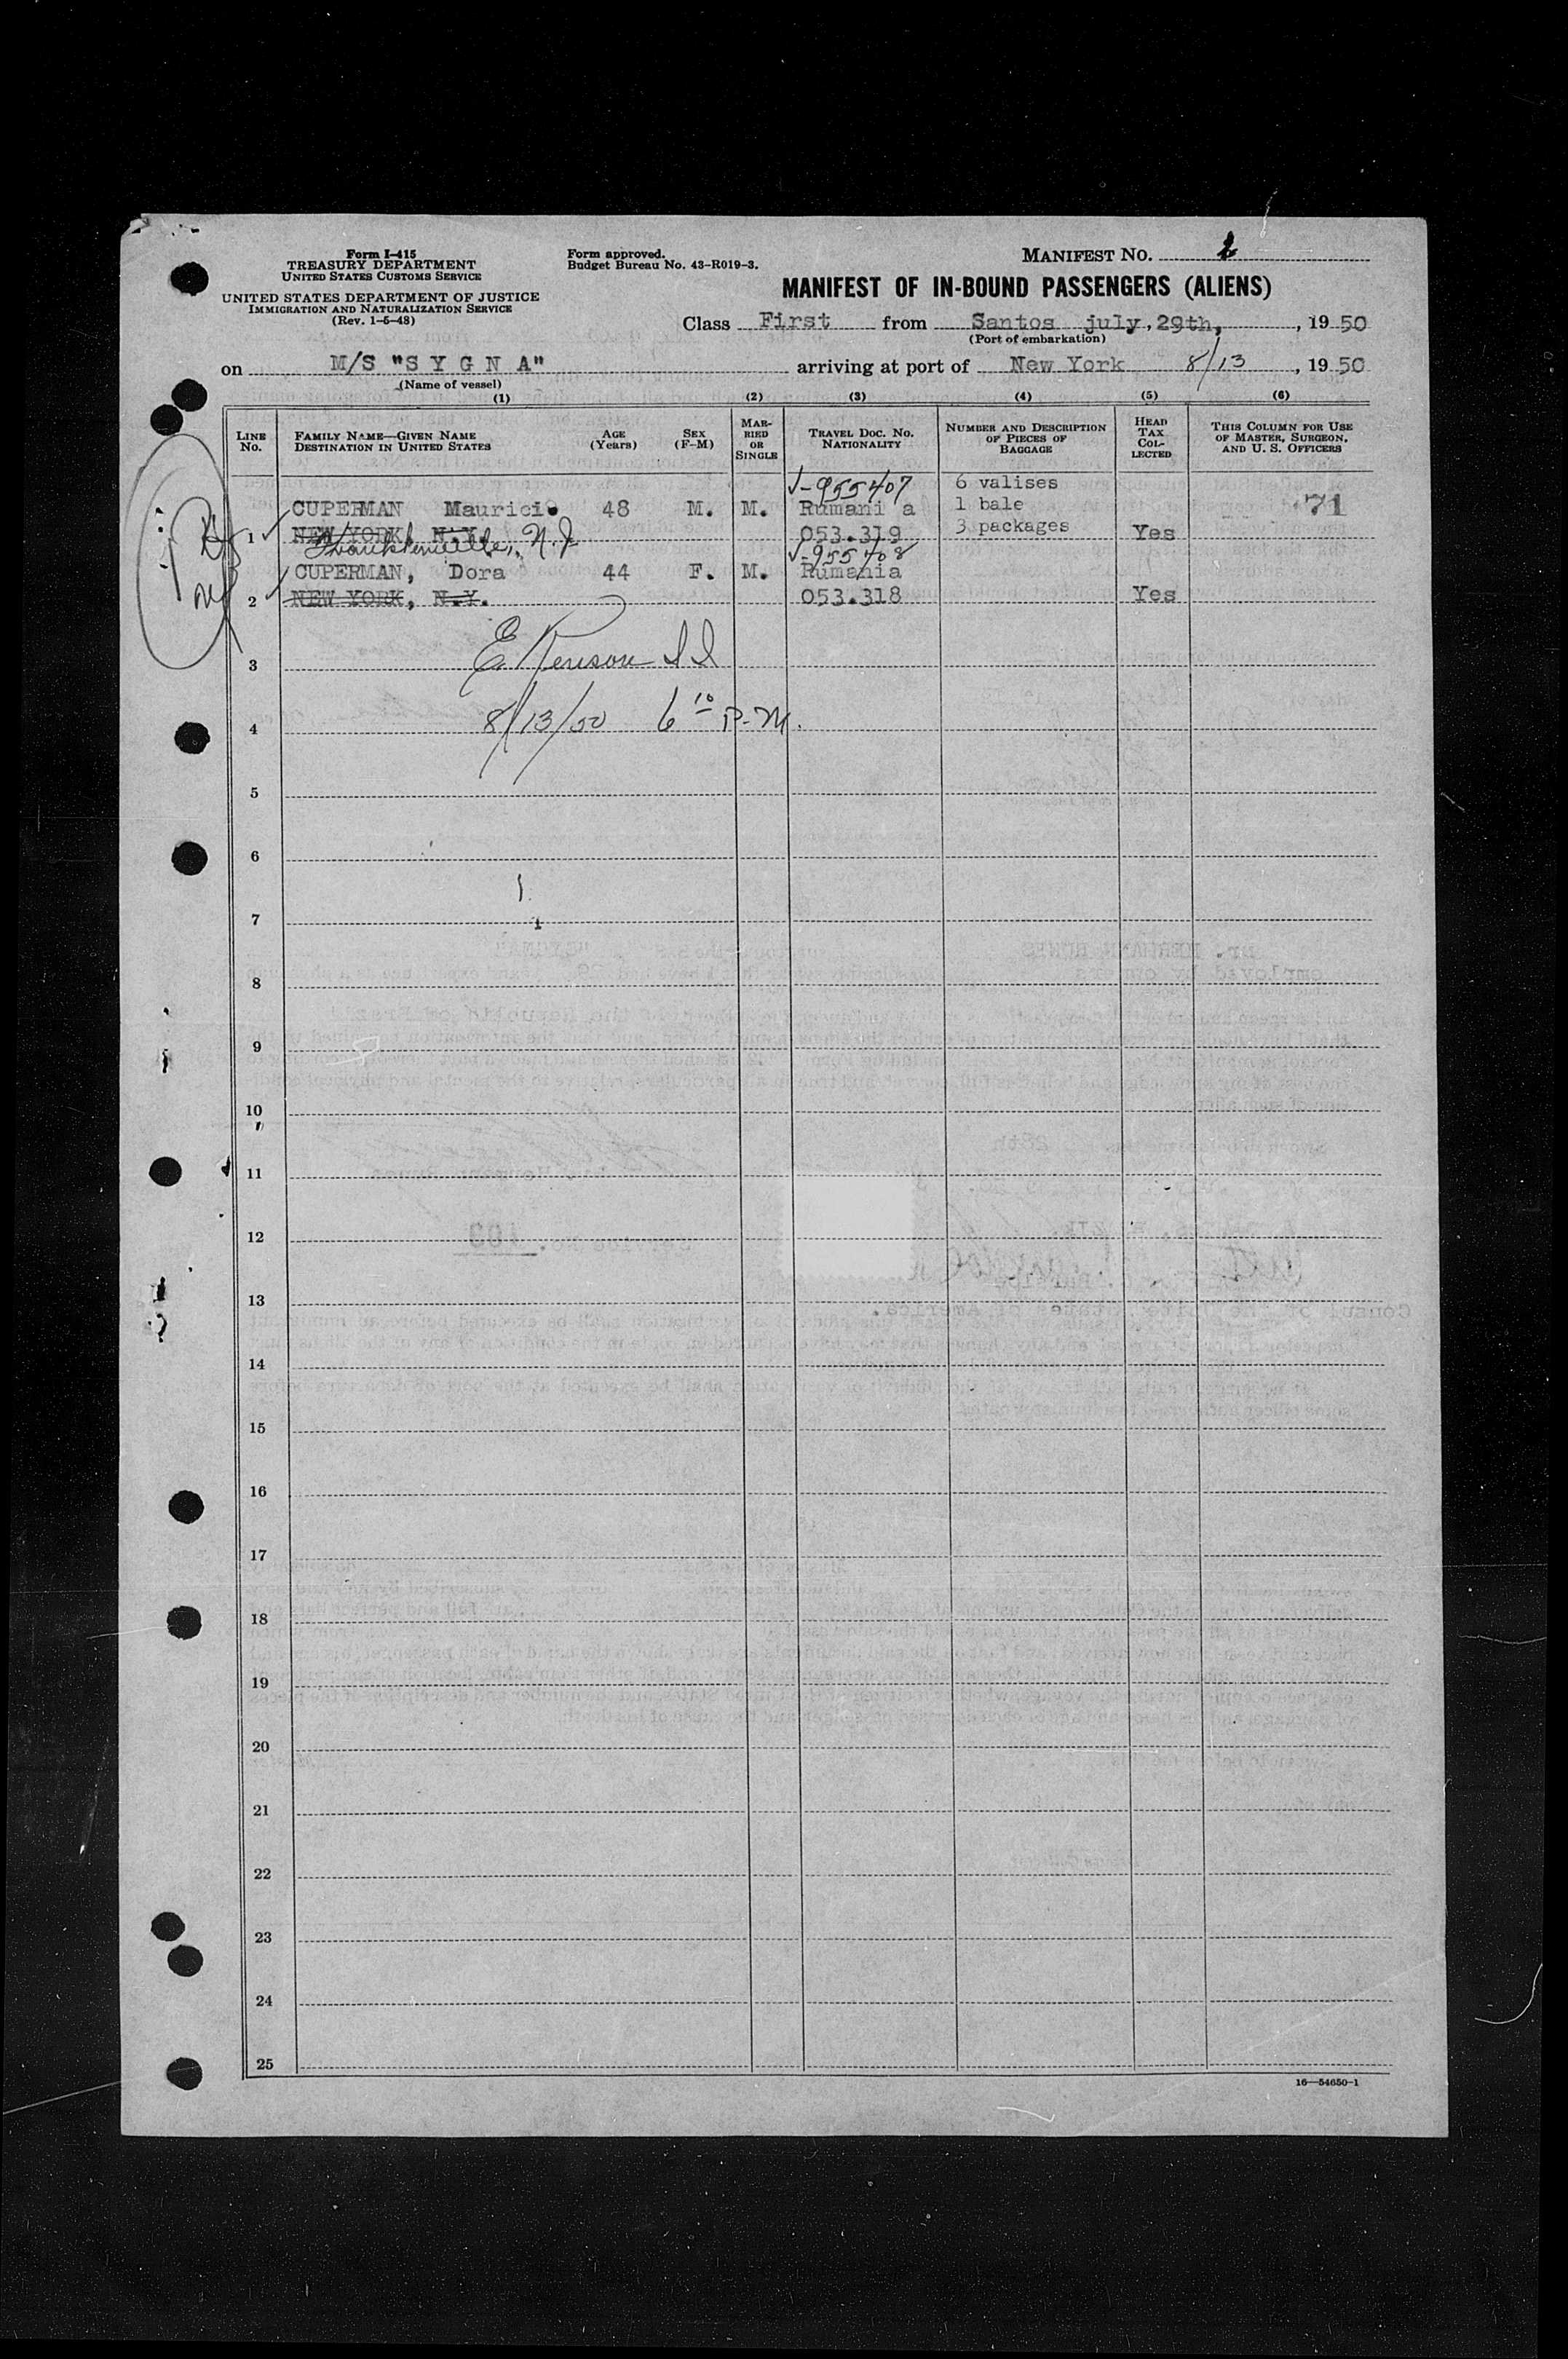 Form I-415
TREASURY DEPARTMENT
UNITED STATES CUSTOMS SERVICE
UNITED STATES DEPARTMENT OF JUSTICE
IMMIGRATION AND NATURALIZATION SERVICE
(Rev. 1-5-48)
Form approved.
Budget Bureau No. 43-R019-3.
MANIFEST NO. 2
MANIFEST OF IN-BOUND PASSENGERS (ALIENS)
Class First from Santos july, 29th, , 19 50
(Port of embarkation)
on M/S "S Y G N A" arriving at port of New York 8/13 , 19 50
(Name of vessel)
(1) (2) (3) (4) (5) (6)
LINE No. FAMILY NAME—GIVEN NAME DESTINATION IN UNITED STATES AGE (Years) SEX (F-M) MARRIED OR SINGLE TRAVEL DOC. NO. NATIONALITY NUMBER AND DESCRIPTION OF PIECES OF BAGGAGE HEAD TAX COLLECTED THIS COLUMN FOR USE OF MASTER, SURGEON, AND U. S. OFFICERS
V-955407 6 valises
CUPERMAN Mauricio 48 M. M. Rumani a 1 bale 71
1 NEW YORK, N.Y. 053.319 3 packages Yes
Franklinville, N.J.
V-955408
CUPERMAN, Dora 44 F. M. Rumania
2 NEW YORK, N.Y. 053.318 Yes
3 E
4 8/13/50 6 10 P.M.
5
6
7
8
9
10
11
12
13
14
15
16
17
18
19
20
21
22
23
24
25
16—54650-1